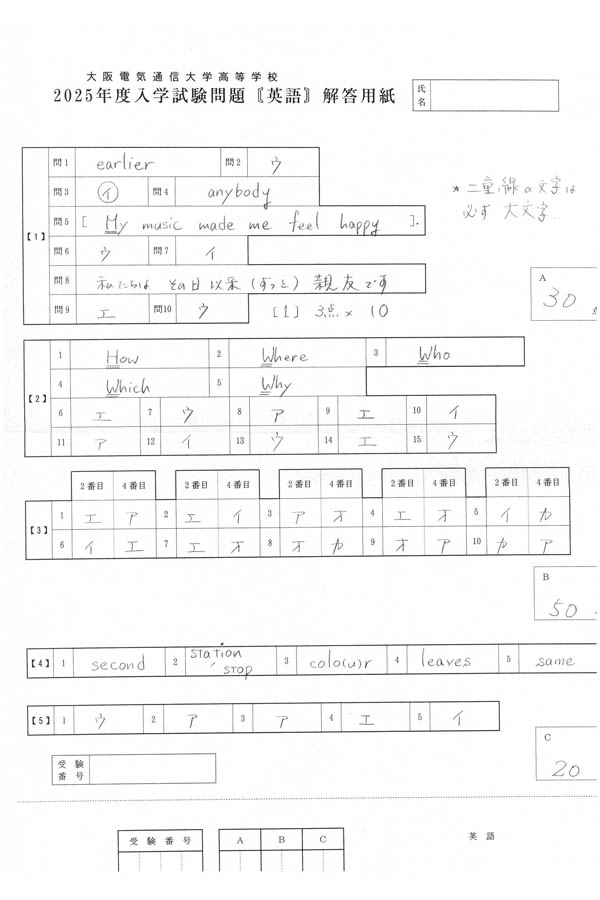 大阪電気通信大学高等学校
2025年度入学試験問題〖英語〗解答用紙
氏名
* 二重線の文字は
必ず 大文字.
【1】
問1 earlier 問2 ウ
問3 イ 問4 anybody
問5 [ My music made me feel happy ].
問6 ウ 問7 イ
問8 私たちは その日以来 (ずっと) 親友です
問9 エ 問10 ウ [1] 3点 × 10
A
30 点
【2】
1 How 2 Where 3 Who
4 Which 5 Why
6 エ 7 ウ 8 ア 9 エ 10 イ
11 ア 12 イ 13 ウ 14 エ 15 ウ
【3】
2番目 4番目 2番目 4番目 2番目 4番目 2番目 4番目 2番目 4番目
1 エ ア 2 エ イ 3 ア オ 4 エ オ 5 イ カ
6 イ エ 7 エ オ 8 オ カ 9 オ ア 10 カ ア
B
50
【4】 1 second 2 station / stop 3 colo(u)r 4 leaves 5 same
【5】 1 ウ 2 ア 3 ア 4 エ 5 イ
C
20
受験番号
英語
受験番号 A B C